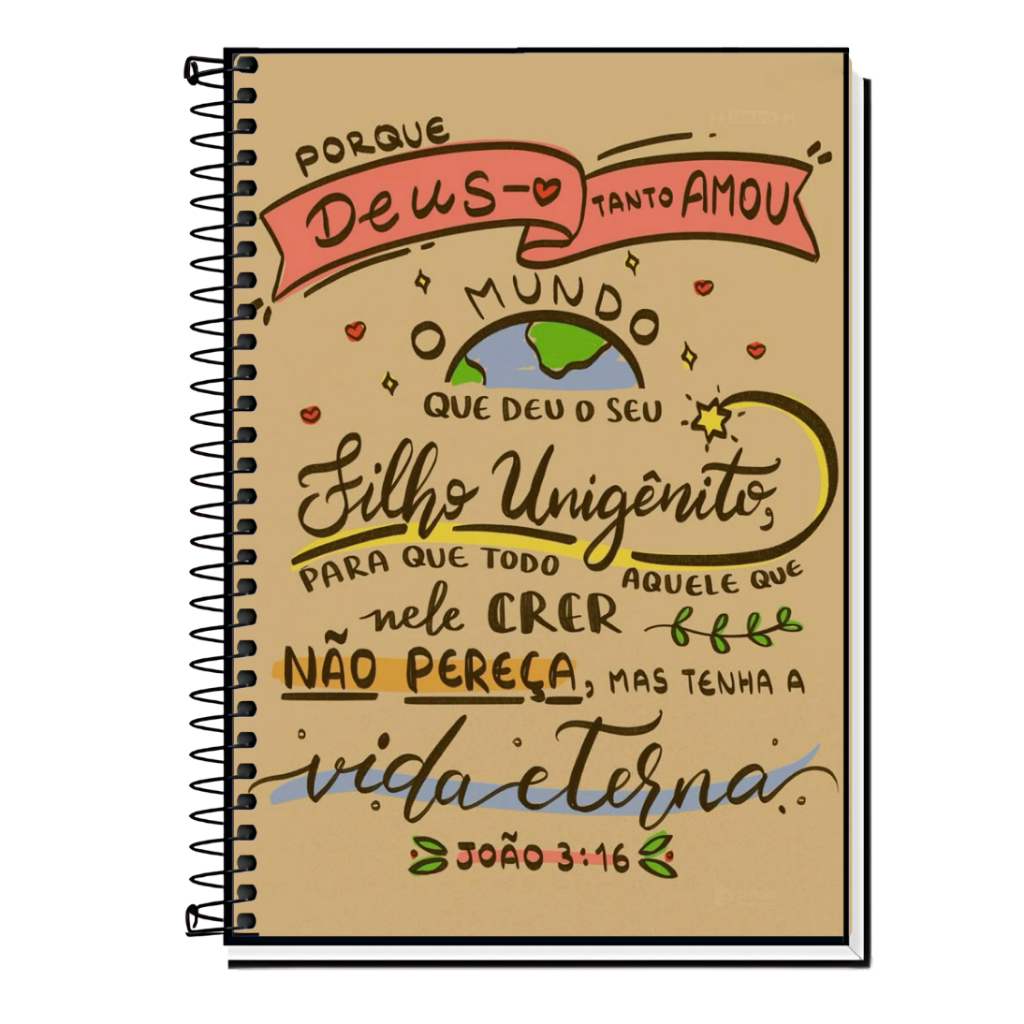 PORQUE
DeuS- TANTO AMOU
O MUNDO
QUE DEU O SEU
Filho Unigênito,
PARA QUE TODO AQUELE QUE
nele CRER
NÃO PEREÇA, MAS TENHA A
vida eterna
JOÃO 3:16